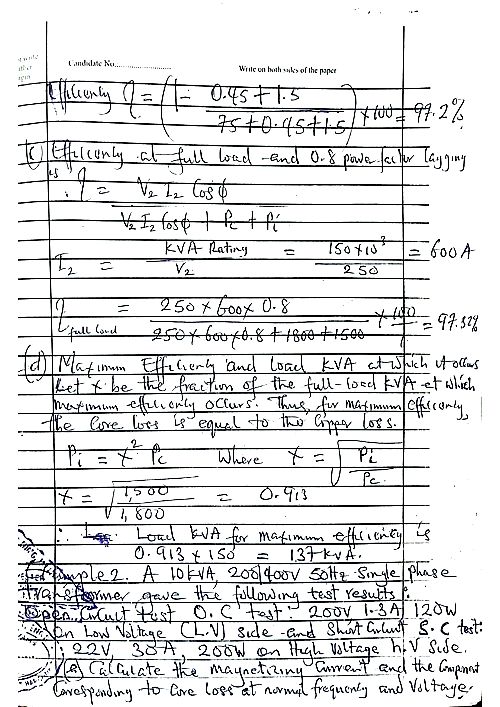 Candidate No.....................
Write on both sides of the paper
Efficiency η = (1 - 0.45 + 1.5 / 75 + 0.45 + 1.5) × 100 = 97.2%
(c) Efficiency at full load and 0.8 power factor lagging
is ∴ η = V₂ I₂ Cosϕ
V₂ I₂ Cosϕ + Pc + Pi
I₂ = KVA Rating / V₂ = 150 × 10³ / 250 = 600A
η full load = 250 × 600 × 0.8 / 250 × 600 × 0.8 + 1800 + 1500 × 100 = 97.32%
(d) Maximum Efficiency and Load KVA at which it occurs
Let x be the fraction of the full-load KVA at which
maximum efficiency occurs. Thus, for maximum efficiency,
the Core loss is equal to the Copper loss.
Pi = x² Pc Where x = √Pi / Pc
x = √1,500 / 1,800 = 0.913
∴ Load KVA for maximum efficiency is
0.913 × 150 = 137 KVA.
Example 2. A 10KVA, 200/400V 50Hz Single phase
Transformer gave the following test results:
Open Circuit test O.C test: 200V 1.3A, 120W
on Low Voltage (L.V) side and Short Circuit S.C test:
22V, 30A, 200W on High Voltage h.V Side.
(a) Calculate the magnetizing Current and the Component
Corresponding to Core loss at normal frequency and Voltage.